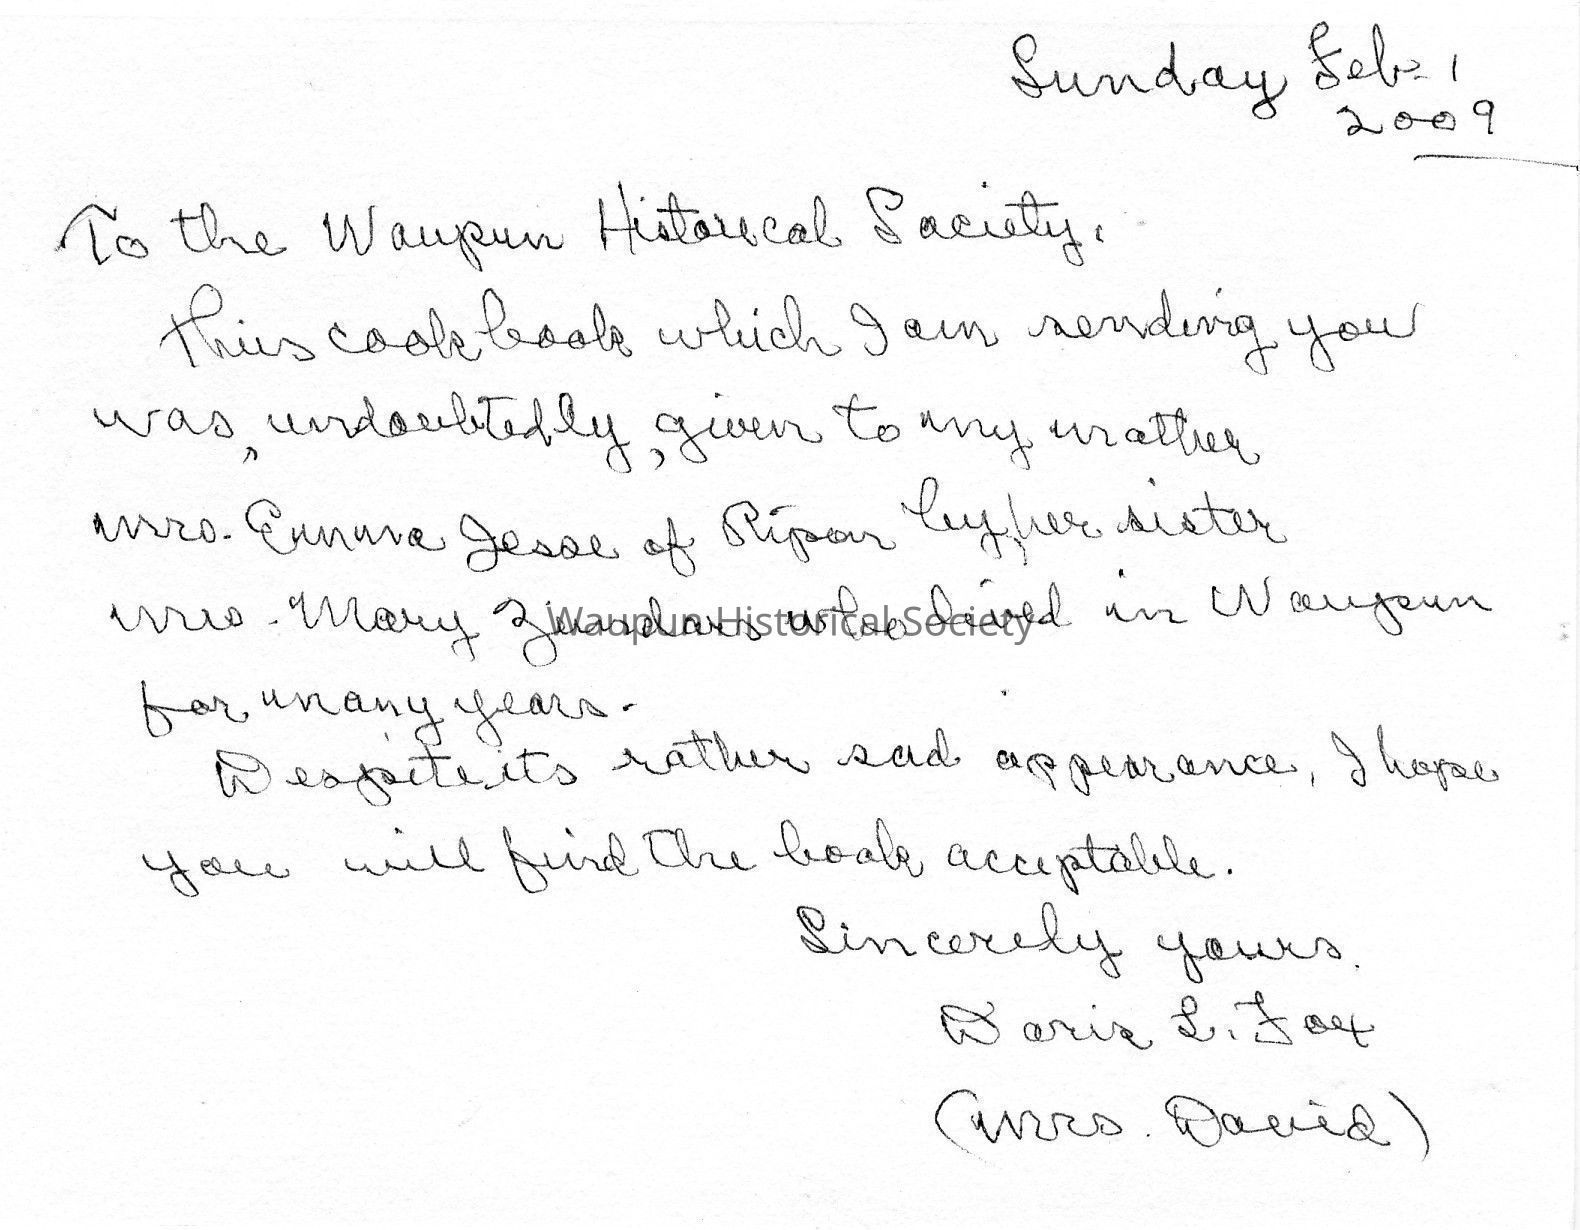 Sunday Feb. 1
2009
To the Waupun Historical Society,
This cook book which I am sending you
was, undoubtedly, given to my mother
Mrs. Emma Jesse of Ripon by her sister
Mrs. Mary who lived in Waupun
Waupun Historical Society
for many years.
Despite its rather sad appearance, I hope
you will find the book acceptable.
Sincerely yours.
Doris L. Fox
(Mrs. David)